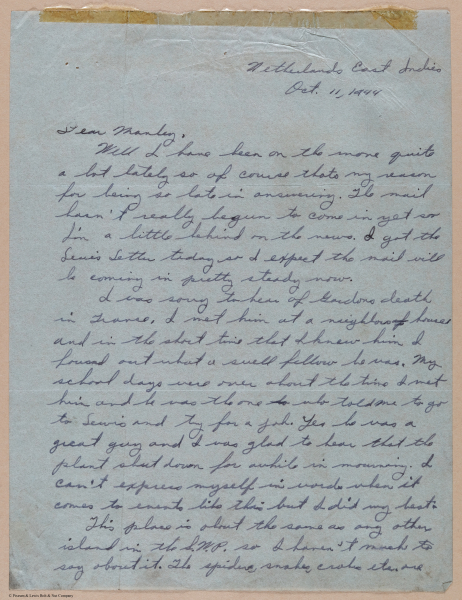 Netherlands East Indies
Oct. 11, 1944
Dear Manley,
Well I have been on the move quite
a bit lately so of course thats my reason
for being so late in answering. The mail
hasn't really begun to come in yet so
I'm a little behind on the news. I got the
Lewis Letter today so I expect the mail will
be coming in pretty steady now.
I was sorry to hear of Gordons death
in France. I met him at a neighbors house
and in the short time that I knew him I
found out what a swell fellow he was. My
school days were over about the time I met
him and he was the one who told me to go
to Lewis and try for a job. Yes he was a
great guy and I was glad to hear that the
plant shut down for awhile in mourning. I
can't express myself in words when it
comes to events like this but I did my best.
This place is about the same as any other
island in the S.W.P. so I haven't much to
say about it. The spiders, snakes, crocs etc. are
© Parsons & Lewis Bolt & Nut Company